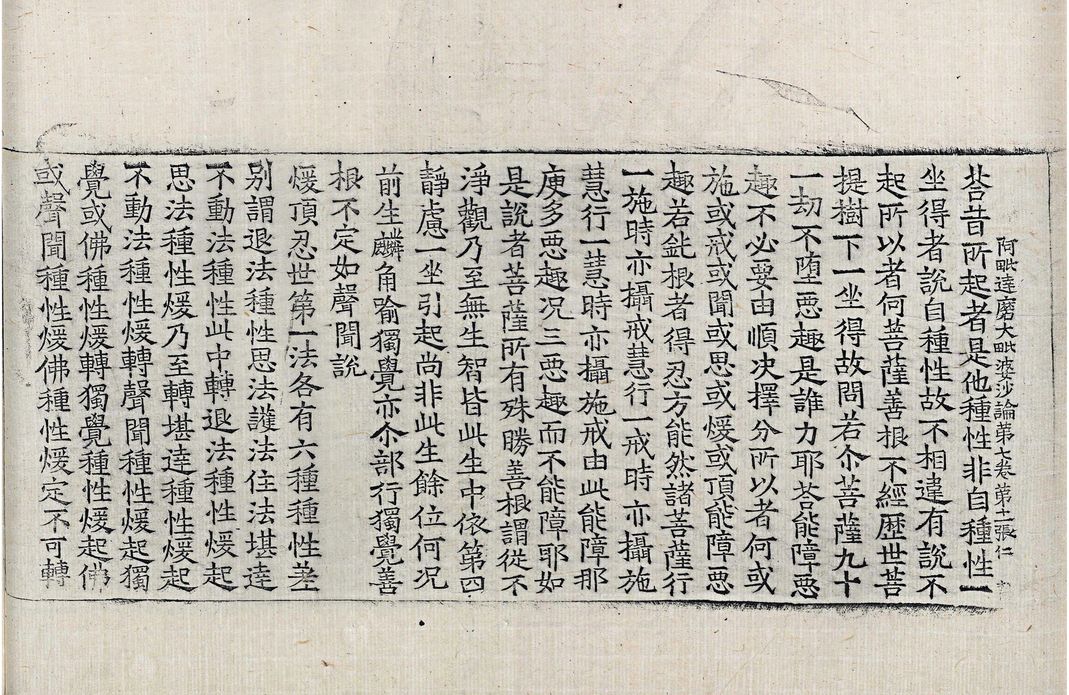 阿毗達磨大毗婆沙論第七卷第十張仁
荅昔所起者是他種性非自種性一
坐得者說自種性故不相違有說不
起所以者何菩薩善根不經歷世菩
提樹下一坐得故問若尒菩薩九十
一劫不墮惡趣是誰力耶荅能障惡
趣不必要由順決擇分所以者何或
施或戒或聞或思或煖或頂能障惡
趣若鈍根者得忍方能然諸菩薩行
一施時亦攝戒慧行一戒時亦攝施
慧行一慧時亦攝施戒由此能障那
庾多惡趣况三惡趣而不能障耶如
是說者菩薩所有殊勝善根謂從不
淨觀乃至無生智皆此生中依第四
靜慮一坐引起尚非此生餘位何况
前生麟角喻獨覺亦尒部行獨覺善
根不定如聲聞說
煖頂忍世第一法各有六種種性差
別謂退法種性思法護法住法堪達
不動法種性此中轉退法種性煖起
思法種性煖乃至轉堪達種性煖起
不動法種性煖轉聲聞種性煖起獨
覺或佛種性煖轉獨覺種性煖起佛
或聲聞種性煖佛種性煖定不可轉